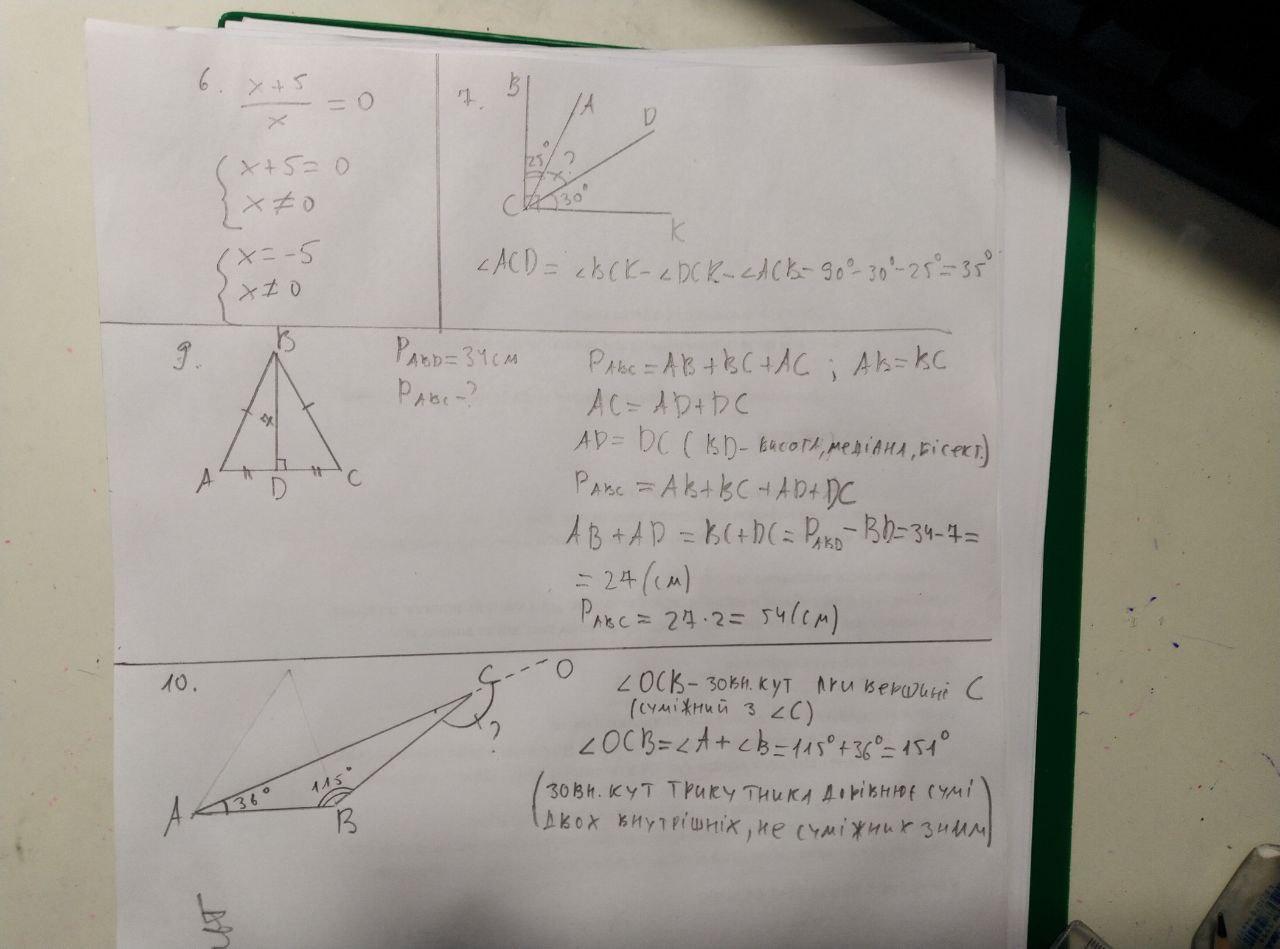 6. x+5
x = 0
{ x+5 = 0
x ≠ 0
{ x = -5
x ≠ 0
7. B A D
25° x ?
C 30°
K
∠ACD = ∠BCK - ∠DCK - ∠ACB = 90° - 30° - 25° = 35°
9. B
A D C
P ABD = 34 см
P ABC - ?
P ABC = AB + BC + AC ; AB = BC
AC = AD + DC
AD = DC ( BD - висота, медіана, бісект.)
P ABC = AB + BC + AD + DC
AB + AD = BC + DC = P ABD - BD = 34 - 7 =
= 27 (см)
P ABC = 27 · 2 = 54 (см)
10. C O
?
115°
A 36° B
∠OCB - зовн. кут при вершині C
(суміжний з ∠C)
∠OCB = ∠A + ∠B = 115° + 36° = 151°
(зовн. кут трикутника дорівнює сумі
двох внутрішніх, не суміжних з ним)